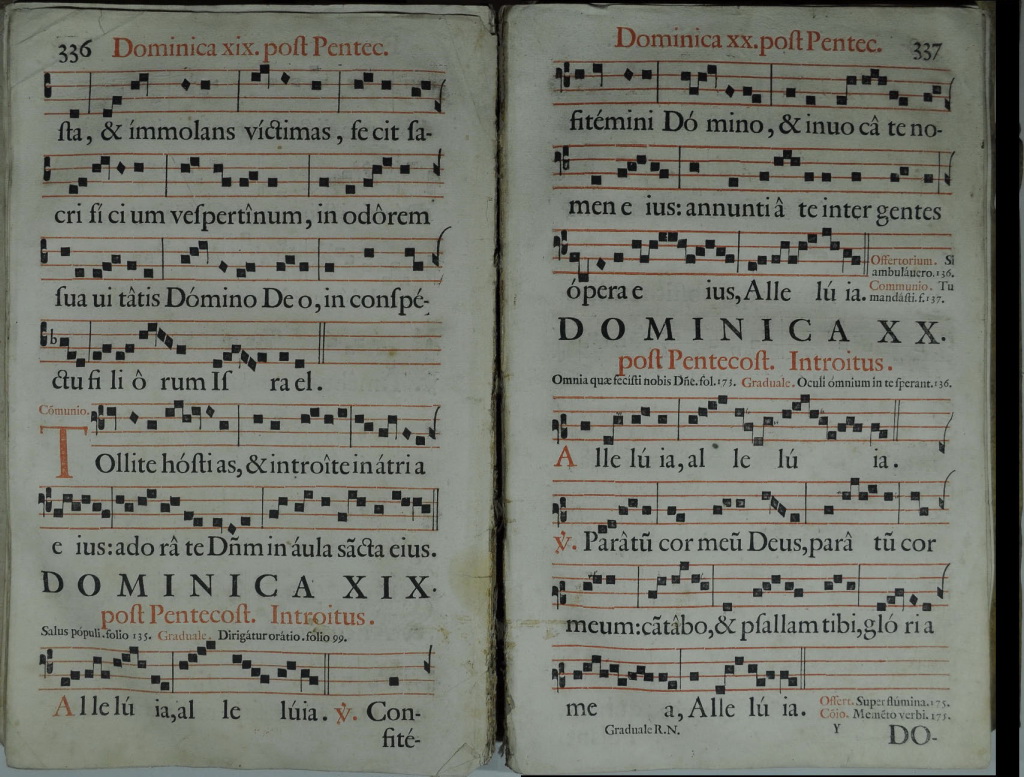 336 Dominica xix. poſt Pentec.
ſta, & ímmolans víctimas, fe cit ſa-
cri fí ci um veſpertînum, in odôrem
ſua ui tâtis Dómino De o, in conſpé-
ctu fi li ô rum Iſ ra el.
Cómunio.
TOllite hóſti as, & introîte in átri a
e ius: ado râ te Dñm in áula sãcta eius.
DOMINICA XIX.
poſt Pentecoſt. Introitus.
Salus pópuli. folio 135. Graduale. Dirigátur orátio. folio 99.
A l le lú ia, al le lúia. ℣. Con-
fité-
Dominica xx. poſt Pentec. 337
fitémini Dó mino, & inuo câ te no-
men e ius: annunti â te inter gentes
ópera e ius, Alle lú ia.
Offertorium. Si
ambuláuero. 136.
Communio. Tu
mandáſti. f. 137.
DOMINICA XX.
poſt Pentecoſt. Introitus.
Omnia quæ feciſti nobis Dñe. fol. 173. Graduale. Oculi ómnium in te ſperant. 136.
A lle lú ia, al le lú ia.
℣. Parâtũ cor meũ Deus, parâ tũ cor
meum: cãtâbo, & pſallam tibi, gló ri a
me a, Alle lú ia.
Offert. Super flúmina. 175.
Cõio. Memẽto verbi. 175.
Graduale R.N. Y DO-